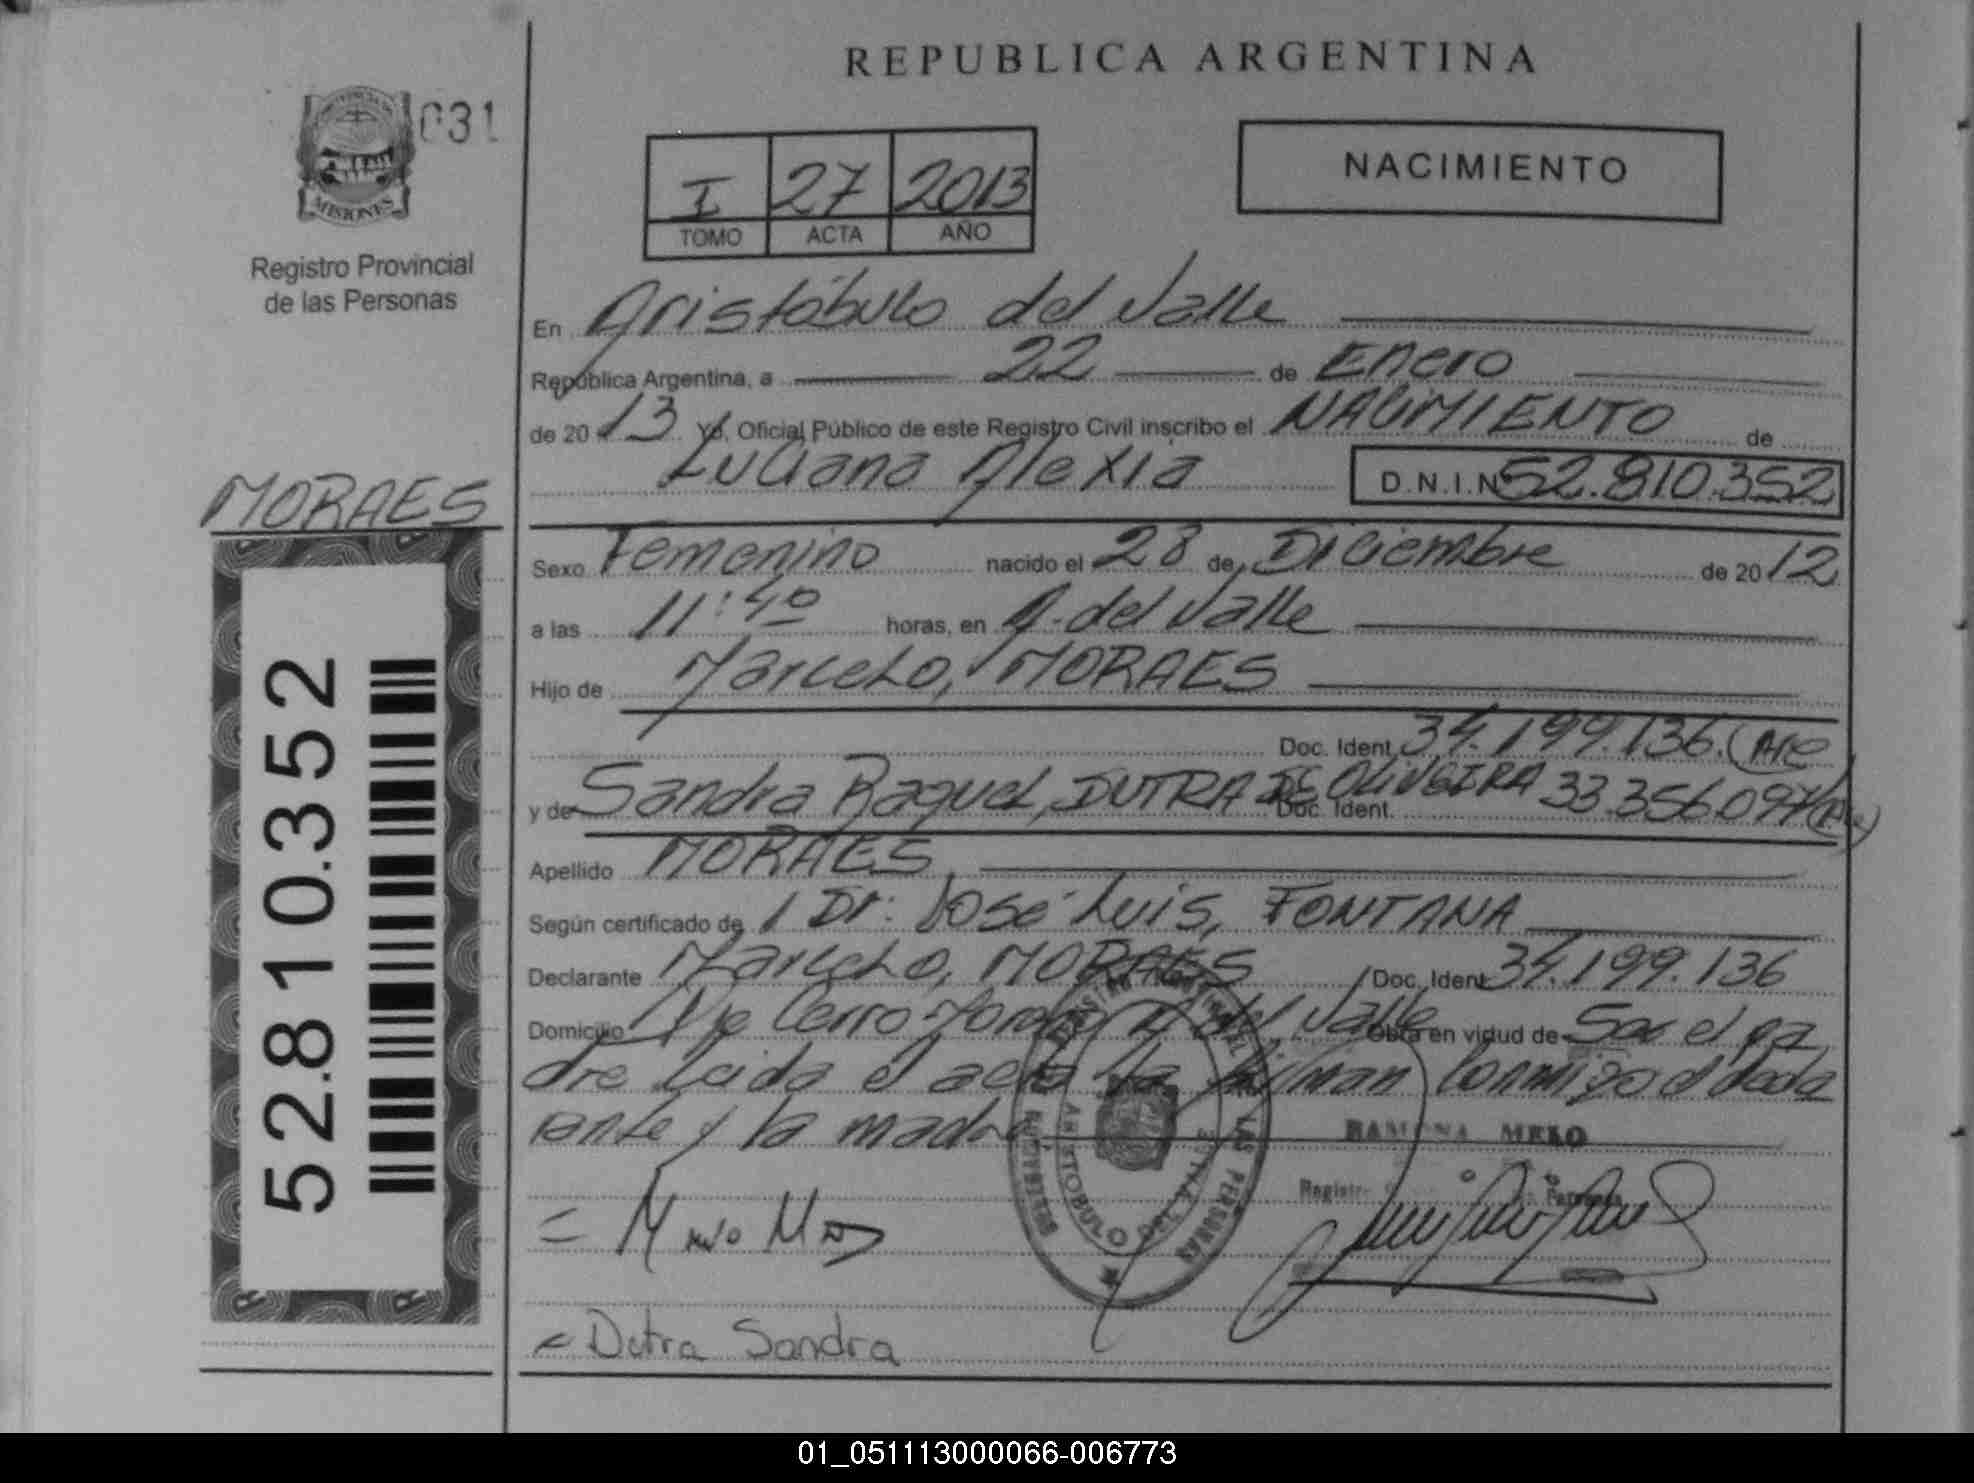 REPUBLICA ARGENTINA
031
MISIONES
Registro Provincial
de las Personas
I 27 2013
TOMO ACTA AÑO
NACIMIENTO
En Aristóbulo del Valle
República Argentina, a 22 de Enero
de 2013 Yo, Oficial Público de este Registro Civil inscribo el NACIMIENTO de
Luciana Alexia D.N.I.Nº 52.810.352
MORAES
Sexo Femenino nacido el 28 de Diciembre de 2012
a las 11:40 horas, en A. del Valle
Hijo de Marcelo, MORAES
Doc. Ident. 34.199.136. (Arg
y de Sandra Raquel, DUTRA DE OLIVEIRA Doc. Ident. 33.356.097
Apellido MORAES
Según certificado de Dr. José Luis, FONTANA
Declarante Marcelo, MORAES Doc. Ident 34.199.136
Domicilio Cerro A. del Valle Obra en virtud de Ser el pa
dre Leida el acta La firman conmigo el decla
rante y la madre
RAMONA MELO
ARISTOBULO DEL VALLE
LAS PERSONAS
Dutra Sandra
52.810.352
01_051113000066-006773